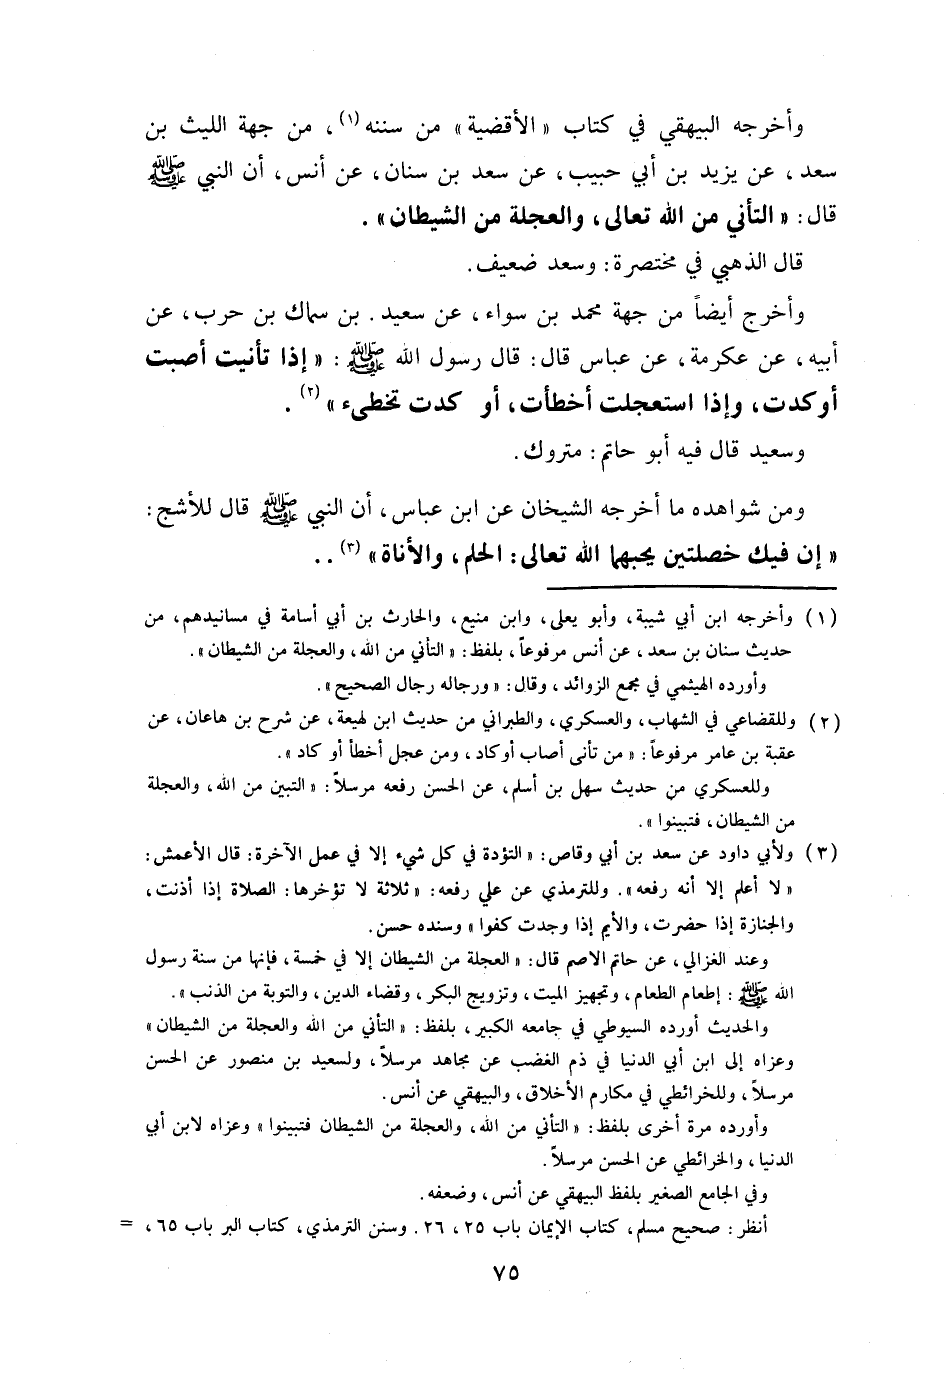 وأخرجه البيهقي في كتاب « الأقضية » من سننه (١) ، من جهة الليث بن
سعد ، عن يزيد بن أبي حبيب ، عن سعد بن سنان ، عن أنس ، أن النبي ﷺ
قال : « التأني من الله تعالى ، والعجلة من الشيطان » .
قال الذهبي في مختصرة : وسعد ضعيف .
وأخرج أيضاً من جهة محمد بن سواء ، عن سعيد . بن سماك بن حرب ، عن
أبيه ، عن عكرمة ، عن عباس قال : قال رسول الله ﷺ : « إذا تأنيت أصبت
أوكدت ، وإذا استعجلت أخطأت ، أو كدت تخطىء » (٢) .
وسعيد قال فيه أبو حاتم : متروك .
ومن شواهده ما أخرجه الشيخان عن ابن عباس ، أن النبي ﷺ قال للأشج :
« إن فيك خصلتين يحبهما الله تعالى : الحلم ، والأناة » (٣) . .
(١) وأخرجه ابن أبي شيبة ، وأبو يعلى ، وابن منيع ، والحارث بن أبي أسامة في مسانيدهم ، من
حديث سنان بن سعد ، عن أنس مرفوعاً ، بلفظ : « التأني من الله ، والعجلة من الشيطان » .
وأورده الهيثمي في مجمع الزوائد ، وقال : « ورجاله رجال الصحيح » .
(٢) وللقضاعي في الشهاب ، والعسكري ، والطبراني من حديث ابن لهيعة ، عن شرح بن هاعان ، عن
عقبة بن عامر مرفوعاً : « من تأنى أصاب أوكاد ، ومن عجل أخطأ أو كاد » .
وللعسكري من حديث سهل بن أسلم ، عن الحسن رفعه مرسلاً : « التبين من الله ، والعجلة
من الشيطان ، فتبينوا » .
(٣) ولأبي داود عن سعد بن أبي وقاص : « التؤدة في كل شيء إلا في عمل الآخرة : قال الأعمش :
« لا أعلم إلا أنه رفعه » . وللترمذي عن علي رفعه : « ثلاثة لا تؤخرها : الصلاة إذا أذنت ،
والجنازة إذا حضرت ، والأيم إذا وجدت كفوا » وسنده حسن .
وعند الغزالي ، عن حاتم الاصم قال : « العجلة من الشيطان إلا في خمسة ، فإنها من سنة رسول
الله ﷺ : إطعام الطعام ، وتجهيز الميت ، وتزويج البكر ، وقضاء الدين ، والتوبة من الذنب » .
والحديث أورده السيوطي في جامعه الكبير ، بلفظ : « التأني من الله والعجلة من الشيطان »
وعزاه إلى ابن أبي الدنيا في ذم الغضب عن مجاهد مرسلاً ، ولسعيد بن منصور عن الحسن
مرسلاً ، وللخرائطي في مكارم الأخلاق ، والبيهقي عن أنس .
وأورده مرة أخرى بلفظ : « التأني من الله ، والعجلة من الشيطان فتبينوا » وعزاه لابن أبي
الدنيا ، والخرائطي عن الحسن مرسلاً .
وفي الجامع الصغير بلفظ البيهقي عن أنس ، وضعفه .
أنظر : صحيح مسلم ، كتاب الإيمان باب ٢٥ ، ٢٦ . وسنن الترمذي ، كتاب البر باب ٦٥ ، =
٧٥